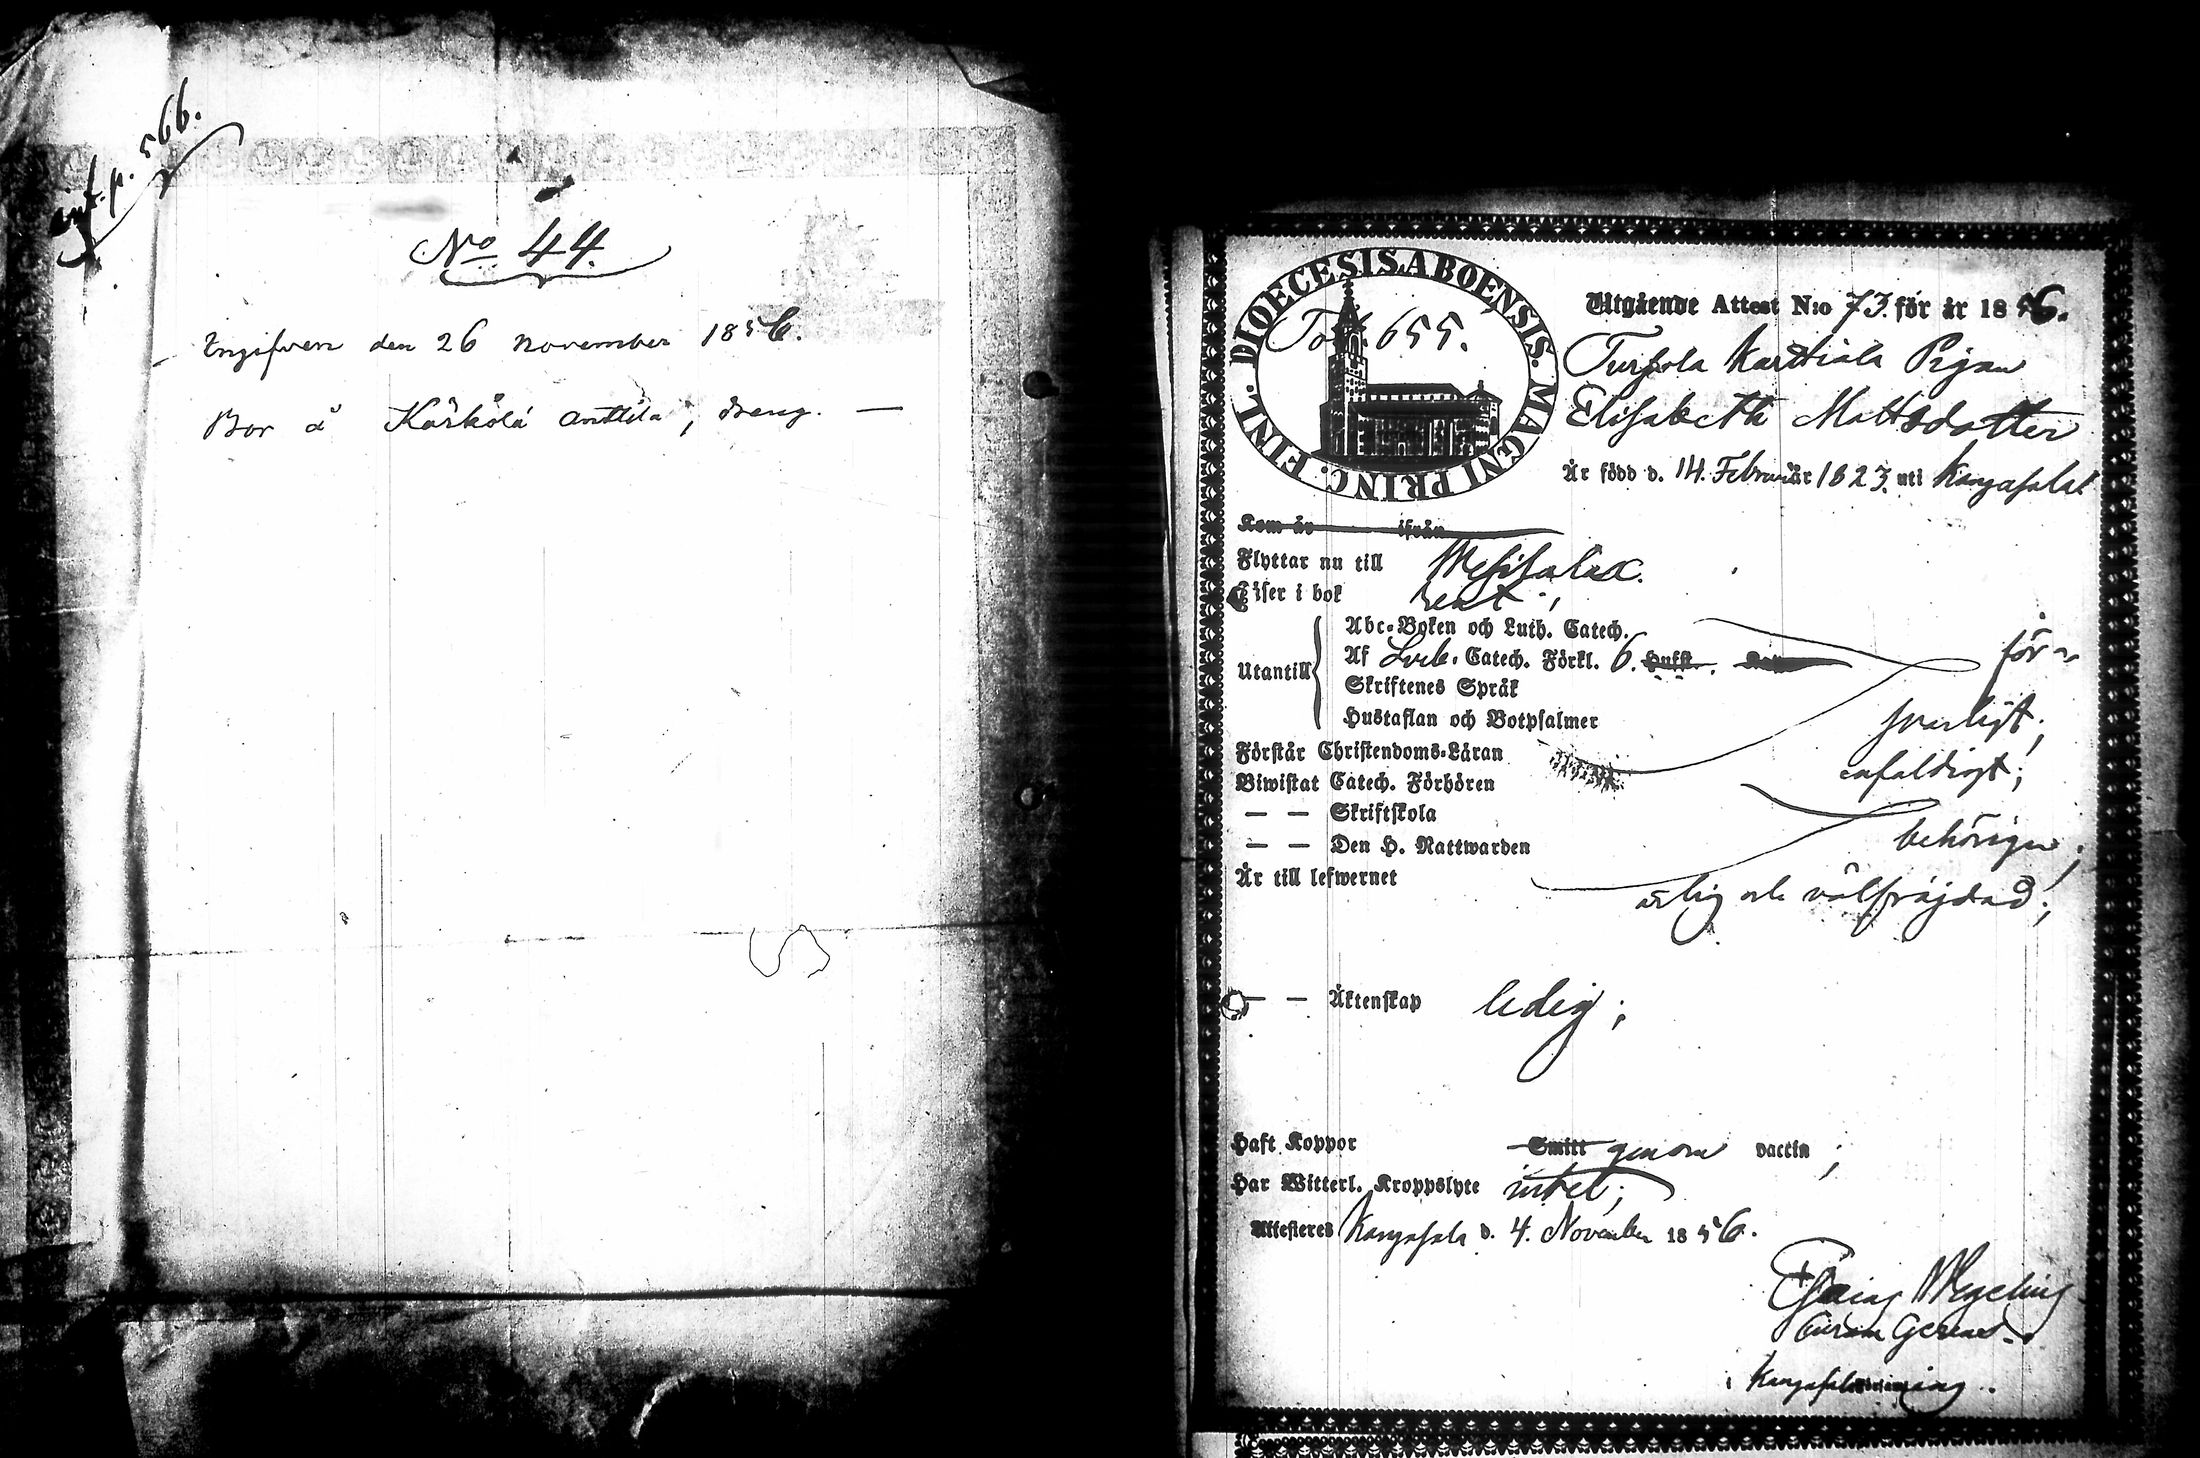 inf. p. 566.
No 44.
Ingifven den 26 November 1856.
Bor å Körkölä Anttila, dräng. —
DIOECESIS ABOENSIS. MAGNI PRINC. FINL.
Tol. 655.
Utgående Attest N:o 73 för år 1856.
Turpola Karttiala Pigan
Elisabeth Mattsdotter
Är född d. 14. Februariär 1823. uti Kangasala
Kom år ifrån
Flyttar nu till Messukylä.
Läser i bok rent;
Abc-Boken och Luth. Catech.
Utantill Af Luth. Catech. Förkl. 6. Hufst. för-
Skriftenes Språk
Hustaflan och Botpsalmer svarligt;
Förstår Christendoms-Läran enfaldigt;
Biwistat Catech. Förhören
— — Skriftskola
— — Den H. Nattwarden behörigen;
Är till lefwernet ärlig och välfräjdad;
— — Äktenskap ledig;
Haft Koppor Smitt genom vaccin;
Har Witterl. Kroppslyte intet;
Attesteras Kangasala d. 4. November 1856.
curam Gerens.
i Kangasala